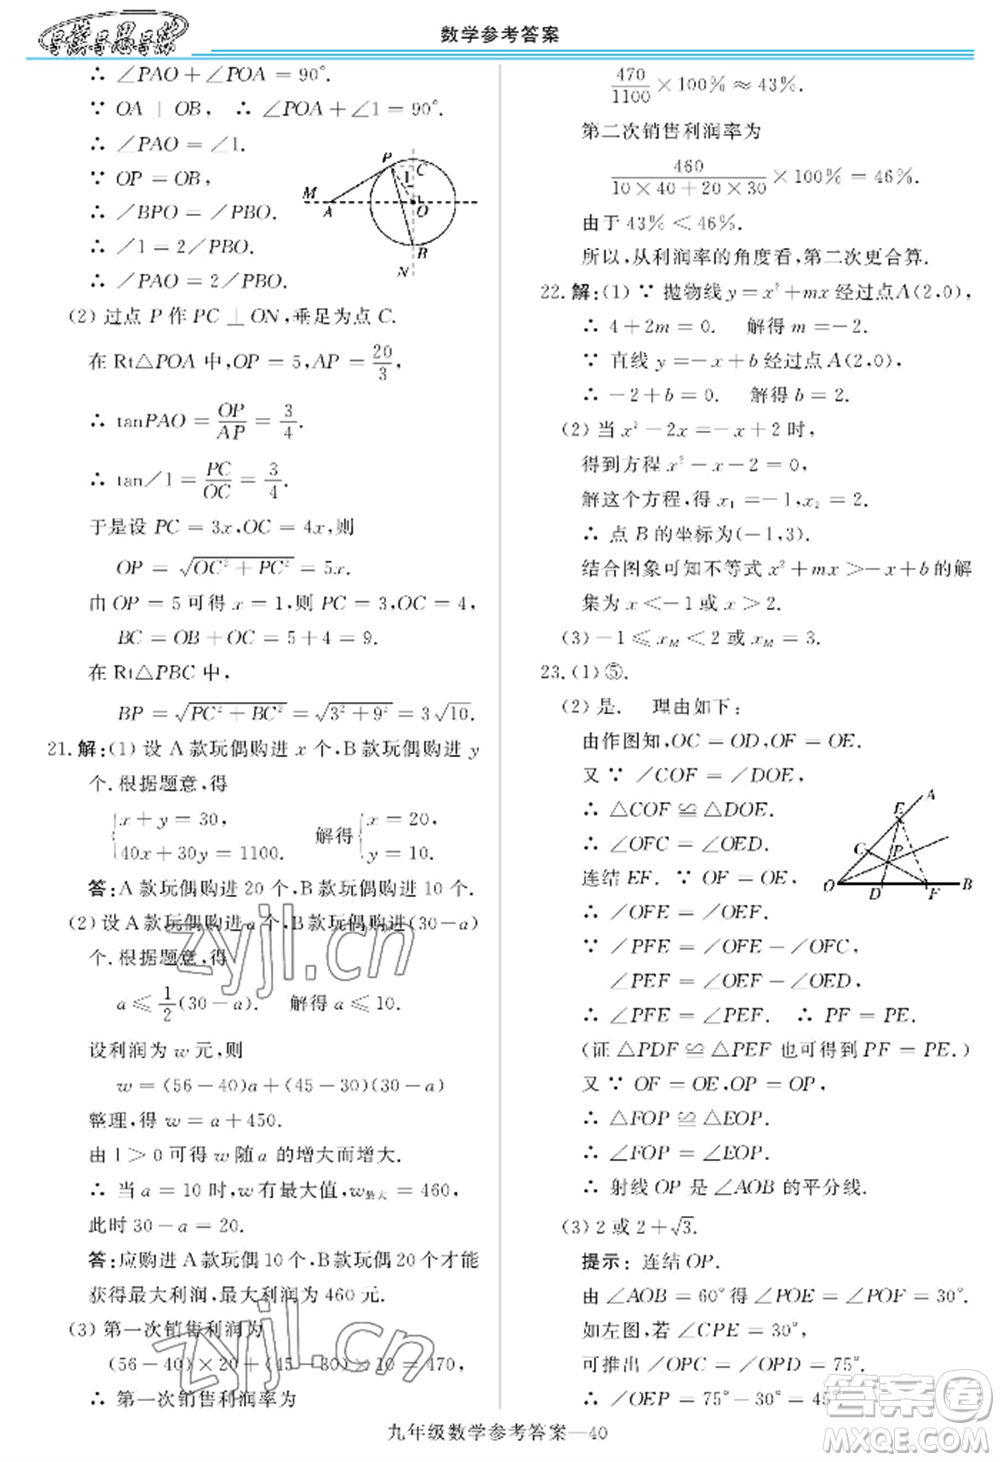 导学导思导练
数学参考答案
∴ ∠PAO+∠POA=90°.
∵ OA⊥OB, ∴ ∠POA+∠1=90°.
∴ ∠PAO=∠1.
∵ OP=OB,
∴ ∠BPO=∠PBO.
∴ ∠1=2∠PBO.
∴ ∠PAO=2∠PBO.
P
C
1
M
A
O
B
N
(2) 过点 P 作 PC⊥ON,垂足为点 C.
在 Rt△POA 中,OP=5,AP=20/3,
∴ tanPAO=OP/AP=3/4.
∴ tan∠1=PC/OC=3/4.
于是设 PC=3x,OC=4x,则
OP=√(OC²+PC²)=5x.
由 OP=5 可得 x=1,则 PC=3,OC=4,
BC=OB+OC=5+4=9.
在 Rt△PBC 中,
BP=√(PC²+BC²)=√(3²+9²)=3√10.
21. 解:(1) 设 A 款玩偶购进 x 个,B 款玩偶购进 y
个.根据题意,得
{x+y=30, 40x+30y=1100. 解得 {x=20, y=10.
答:A 款玩偶购进 20 个,B 款玩偶购进 10 个.
(2) 设 A 款玩偶购进 a 个,B 款玩偶购进(30-a)
个.根据题意,得
a⩽1/2(30-a). 解得 a⩽10.
设利润为 w 元,则
w=(56-40)a+(45-30)(30-a)
整理,得 w=a+450.
由 1>0 可得 w 随 a 的增大而增大.
∴ 当 a=10 时,w 有最大值,w最大=460,
此时 30-a=20.
答:应购进 A 款玩偶 10 个,B 款玩偶 20 个才能
获得最大利润,最大利润为 460 元.
(3) 第一次销售利润为
(56-40)×20+(45-30)×10=470,
∴ 第一次销售利润率为
470/1100×100%≈43%.
第二次销售利润率为
460/(10×40+20×30)×100%=46%.
由于 43%<46%.
所以,从利润率的角度看,第二次更合算.
22. 解:(1) ∵ 抛物线 y=x²+mx 经过点A(2,0),
∴ 4+2m=0. 解得 m=-2.
∵ 直线 y=-x+b 经过点A(2,0),
∴ -2+b=0. 解得 b=2.
(2) 当 x²-2x=-x+2 时,
得到方程 x²-x-2=0,
解这个方程,得 x₁=-1,x₂=2.
∴ 点 B 的坐标为(-1,3).
结合图象可知不等式 x²+mx>-x+b 的解
集为 x<-1 或 x>2.
(3) -1⩽x_M<2 或 x_M=3.
23. (1) ⑤.
(2) 是. 理由如下:
由作图知,OC=OD,OF=OE.
又 ∵ ∠COF=∠DOE,
∴ △COF≌△DOE.
∴ ∠OFC=∠OED.
连结 EF. ∵ OF=OE,
∴ ∠OFE=∠OEF.
∵ ∠PFE=∠OFE-∠OFC,
∠PEF=∠OEF-∠OED,
∴ ∠PFE=∠PEF. ∴ PF=PE.
(证 △PDF≌△PEF 也可得到 PF=PE.)
又 ∵ OF=OE,OP=OP,
∴ △FOP≌△EOP.
∴ ∠FOP=∠EOP.
∴ 射线 OP 是∠AOB 的平分线.
A
E
C
P
O
D
F
B
(3) 2 或 2+√3.
提示: 连结 OP.
由∠AOB=60°得∠POE=∠POF=30°.
如左图,若∠CPE=30°,
可推出∠OPC=∠OPD=75°.
∴ ∠OEP=75°-30°=45°
zyjl.cn
zyjl.cn
答案圈
MXQE.COM
九年级数学参考答案—40